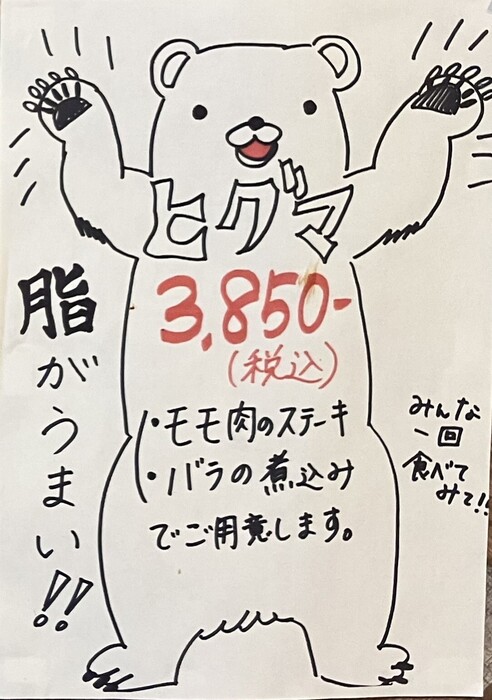 ヒグマ
3,850-
(税込)
・モモ肉のステーキ
・バラの煮込み
でご用意します。
脂がうまい!!
みんな
一回
食べて
みて!!